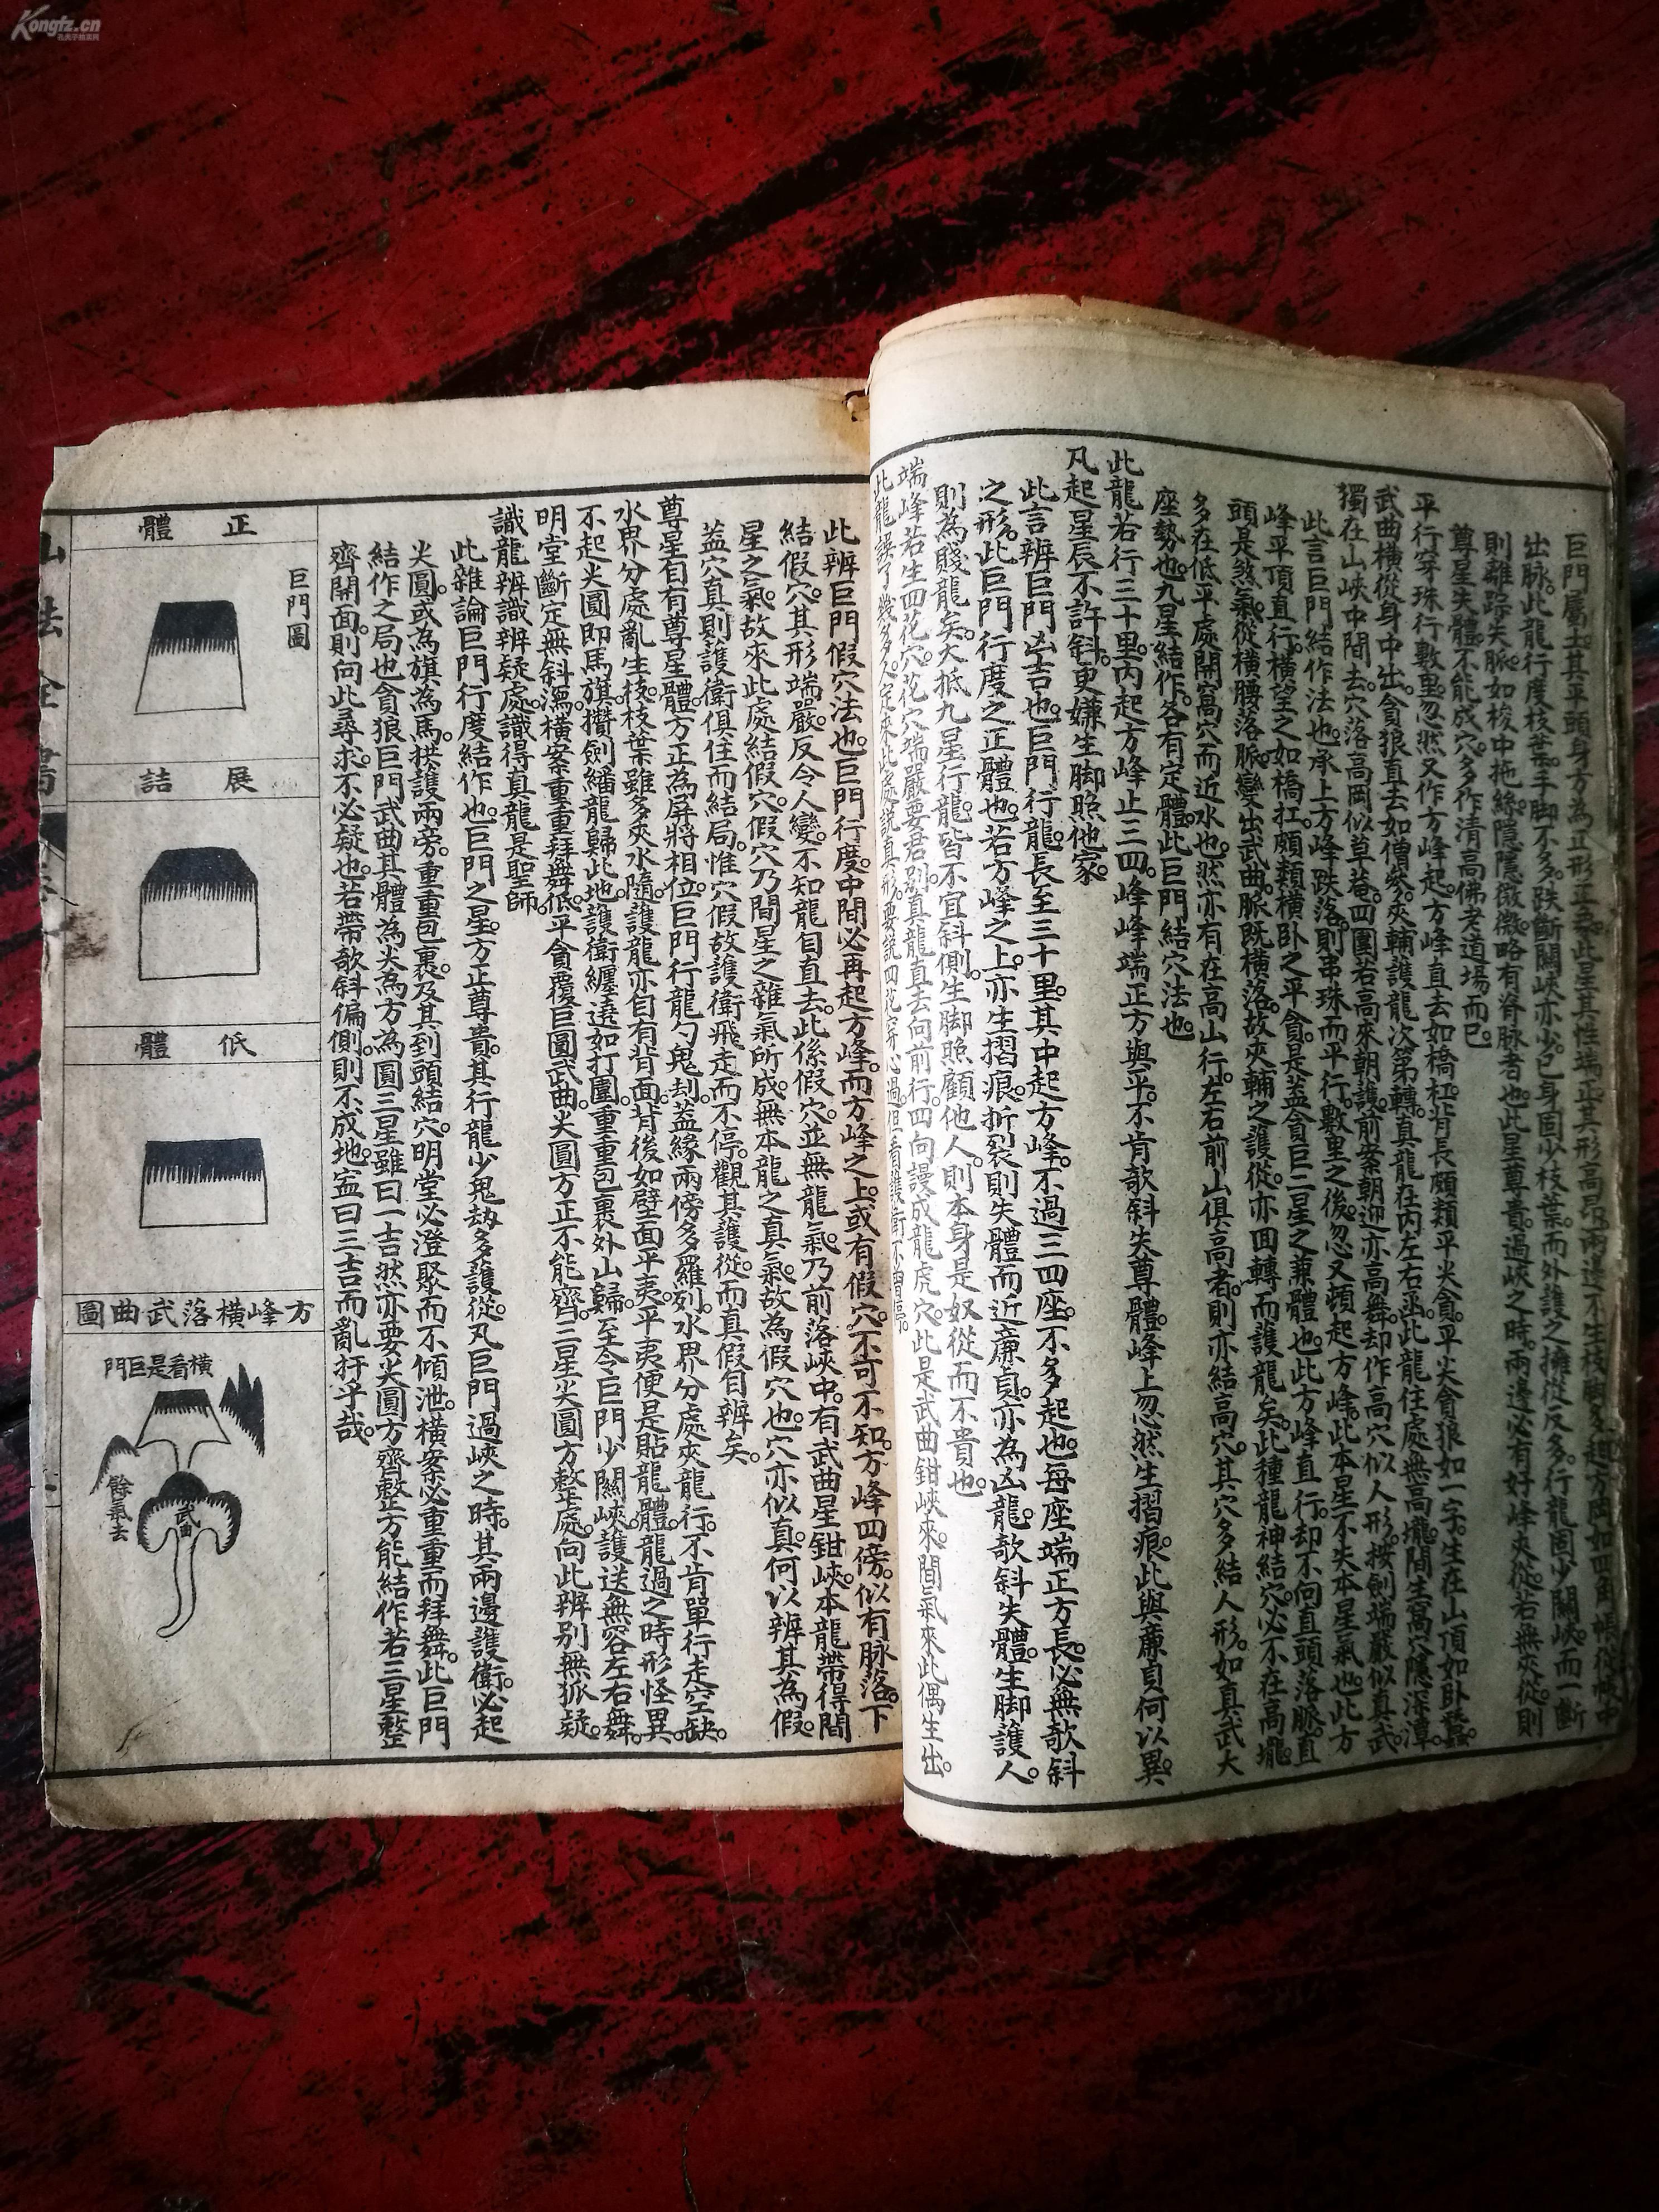 Kongfz.cn
巨門屬土其平頭身方為正形
出脉此龍行度枝葉手脚不多跌斷關峽亦少已身固少枝葉而外護之擁從反多行龍固少關峽而一斷
則離踪失脈如梭中拖絲隱隱微微略有脊脉者也此星尊貴過峽之時兩邊必有好峰夾從若無夾從則
尊星失體不能成穴多作清高佛老道場而已
平行穿珠行數里忽然又作方峰起方峰直去如橋杠背長頗類平尖貪平尖貪狼如一字生在山頂如卧蠶
武曲橫從身中出貪狼直去如僧參夾輔護龍次第轉真龍在内左右函此龍住處無高壠間生窩穴隱深潭
獨在山峽中間去穴落高岡似草菴四圍若高來朝護前案朝迎亦高舞却作高穴似人形按劍端嚴似真武
此言巨門結作法也承上方峰跌落則串珠而平行數里之後忽又頓起方峰此本星不失本星氣也此方
峰平頂直行橫望之如橋扛頗類橫卧之平貪是蓋貪巨二星之兼體也此方峰直行却不向直頭落脈直
頭是煞氣從橫腰落脈變出武曲脈既橫落故夾輔之護從亦回轉而護龍矣此種龍神結穴必不在高壠
多在低平處開窩穴而近水也然亦有在高山行左右前山俱高者則亦結高穴其穴多結人形如真武大
座勢也九星結作各有定體此巨門結穴法也
此龍若行三十里内起方峰止三四峰峰端正方與平不肯欹斜失尊體峰上忽然生摺痕此與廉貞何以異
凡起星辰不許斜更嫌生脚照他家
此言辨巨門凶吉也巨門行龍長至三十里其中起方峰不過三四座不多起也每座端正方長必無欹斜
之形此巨門行度之正體也若方峰之上亦生摺痕折裂則失體而近廉貞亦為凶龍欹斜失體生脚護人
則為賤龍矣大抵九星行龍皆不宜斜側生脚照顧他人則本身是奴從而不貴也
端峰若生四花穴花穴端嚴要君别真龍直去向前行四向謾成龍虎穴此是武曲鉗峽來間氣來此偶生出
此龍誤了幾多人定來此處說真形要說四花穿心過但看護衛不曾停
此辨巨門假穴法也巨門行度中間必再起方峰而方峰之上或有假穴不可不知方峰四傍似有脉落下
結假穴其形端嚴反令人變不知龍自直去此係假穴並無龍氣乃前落峽中有武曲星鉗峽本龍帶得間
星之氣故來此處結假穴假穴乃間星之雜氣所成無本龍之真氣故為假穴也穴亦似真何以辨其為假
蓋穴真則護衛俱住而結局惟穴假故護衛飛走而不停觀其護從而真假自辨矣
尊星自有尊星體方正為屏將相位巨門行龍勺鬼刦蓋緣兩傍多羅列水界分處夾龍行不肯單行走空缺
水界分處亂生枝枝葉雖多夾水隨護龍亦自有背面背後如壁面平夷平夷便是貼龍體龍過之時形怪異
不起尖圓即馬旗攢劍蟠龍歸此地護衛纏遶如打圍重重包裹外山歸至令巨門少關峽護送無容左右舞
明堂斷定無斜瀉橫案重重拜舞低平貪覆巨圓武曲尖圓方正不能齊三星尖圓方整處向此辨别無狐疑
識龍辨識辨疑處識得真龍是聖師
此雜論巨門行度結作也巨門之星方正尊貴其行龍少鬼劫多護從凡巨門過峽之時其兩邊護衛必起
尖圓或為旗為馬拱護兩旁重重包裹及其到頭結穴明堂必澄聚而不傾泄橫案必重重而拜舞此巨門
結作之局也貪狼巨門武曲其體為尖為方為圓三星雖曰一吉然亦要尖圓方齊整方能結作若三星整
齊開面則向此尋求不必疑也若帶欹斜偏側則不成地盍曰三吉而亂扦乎哉
正體
巨門圖
展誥
低體
方峰橫落武曲圖
橫看是巨門
武曲
餘氣去
山法全書